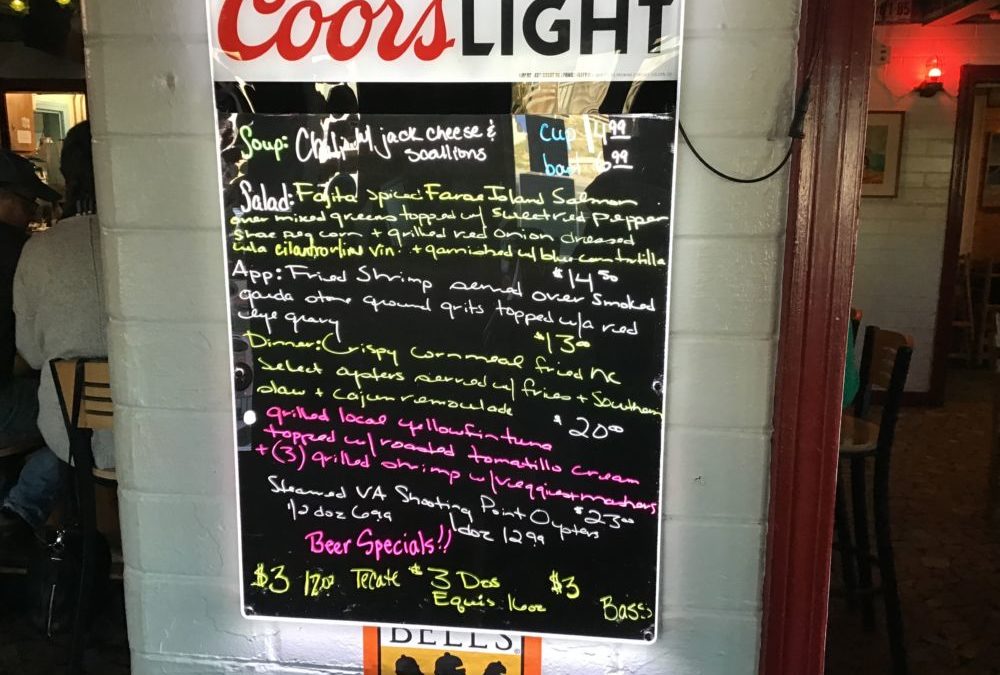 Coors LIGHT
Soup: jack cheese & cup 4.99
scallions bowl 6.99
Salad: Fajita Spiced Faroe Island Salmon
over mixed greens topped w/ sweet red pepper
shoe peg corn + grilled red onion dressed
in a cilantro lime vin. + garnished w/ blue corn tortilla
$14.50
App: Fried Shrimp served over Smoked
gouda stone ground grits topped w/ a red
eye gravy $13.00
Dinner: Crispy cornmeal fried NC
select oysters served w/ fries + Southern
slaw + cajun remoulade $20.00
grilled local yellowfin tuna
topped w/ roasted tomatillo cream
+ (3) grilled shrimp w/ veggies + mashers
$23.00
Steamed VA Shooting Point Oysters
1/2 doz 6.99 1 doz 12.99
Beer Specials!!
$3 12oz Tecate $3 Dos $3
Equis 16oz Bass
BELL'S